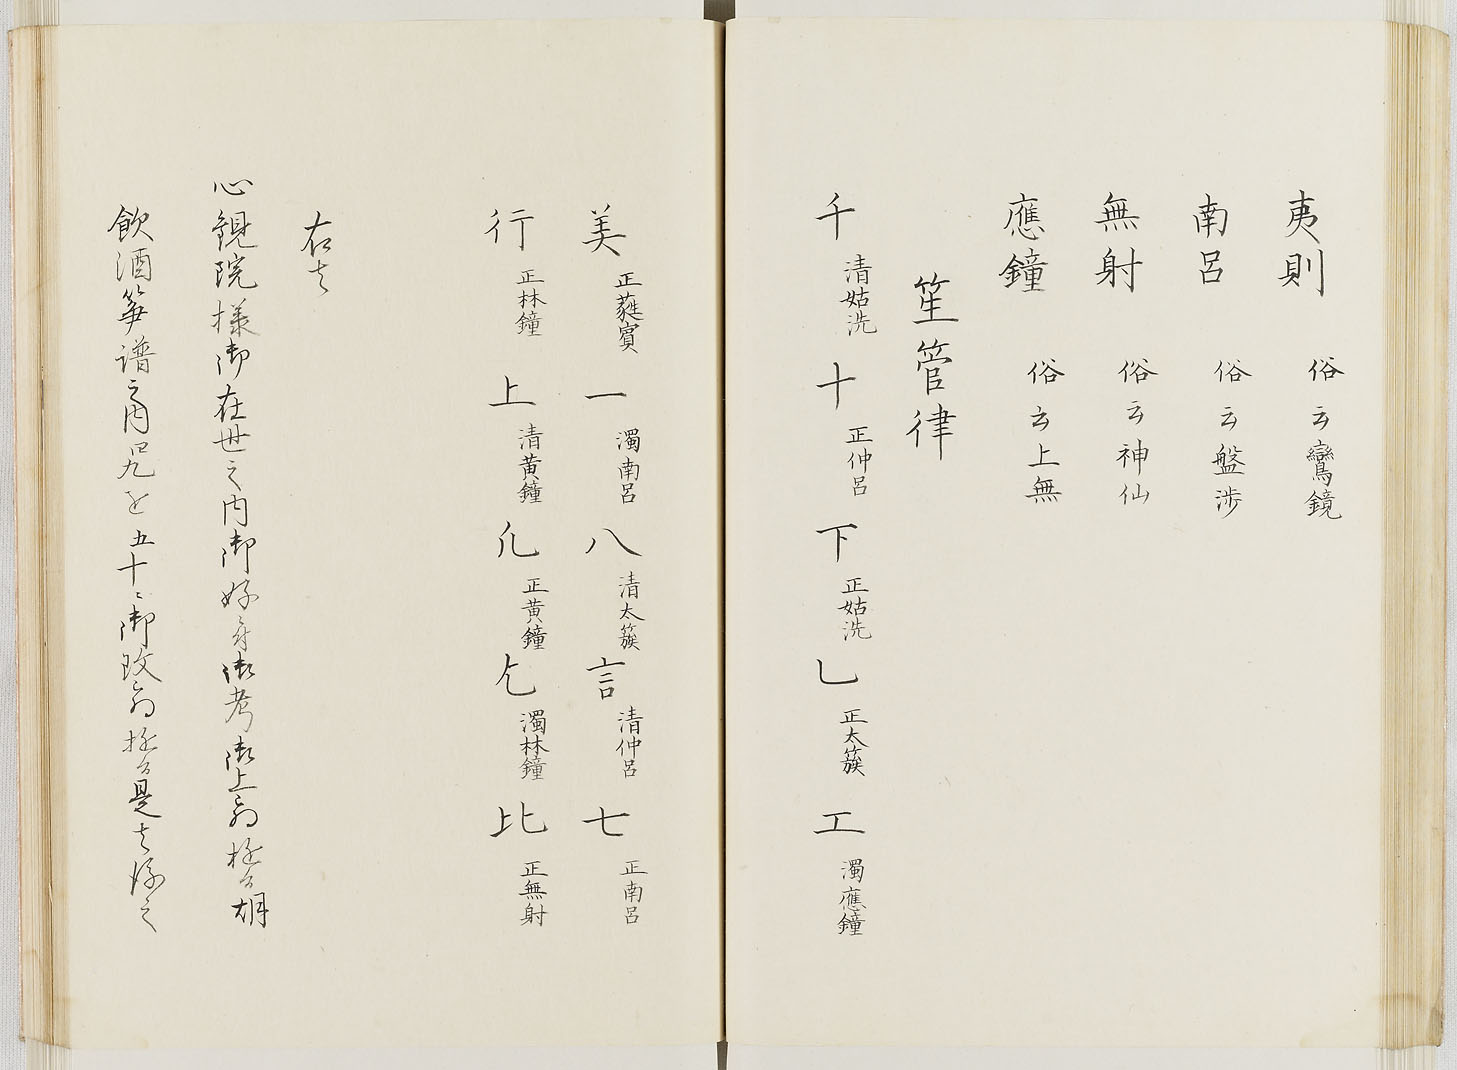 夷則 俗云鸞鏡
南呂 俗云盤渉
無射 俗云神仙
應鐘 俗云上無
笙管律
千 清姑洗 十 正仲呂 下 正姑洗 乚 正太簇 工 濁應鐘
美 正蕤賓 一 濁南呂 八 清太簇 言 清仲呂 七 正南呂
行 正林鐘 上 清黄鐘 凢 正黄鐘 乞 濁林鐘 比 正無射
右者
心鏡院様御在世之内御好ニ付御考御上被遊候胡
飲酒箏譜之内 五十ニ御改被遊候是者